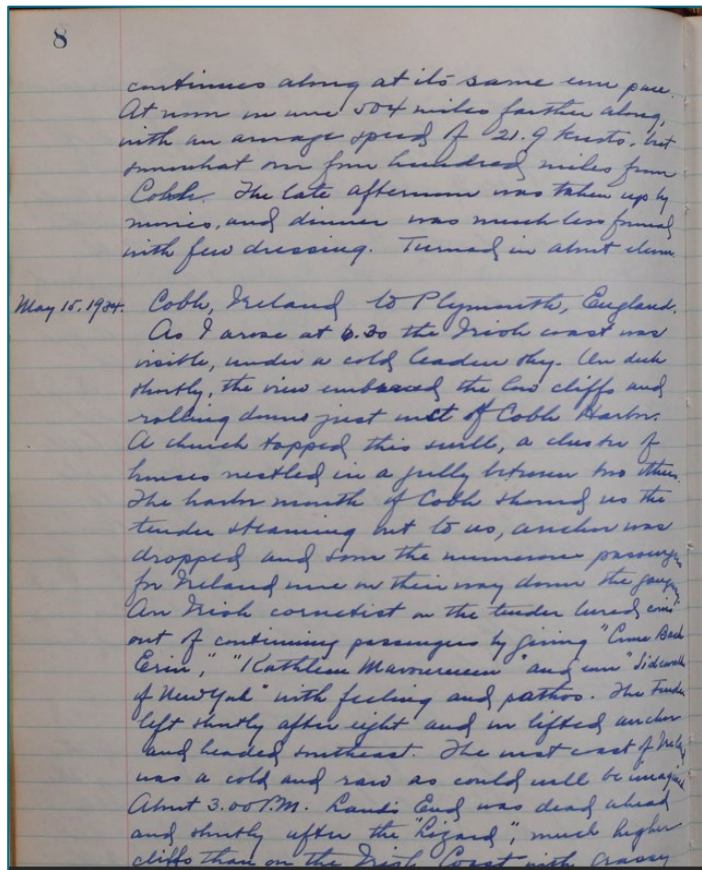 8
continues along at its same even pace.
At noon we were 504 miles farther along,
with an average speed of 21.9 knots, but
somewhat over four hundred miles from
Cobh. The late afternoon was taken up by
movies, and dinner was much less formal
with few dressing. Turned in about eleven.
May 15, 1934. Cobh, Ireland to Plymouth, England.
As I arose at 6.30 the Irish coast was
visible, under a cold leaden sky. On deck
shortly, the view embraced the low cliffs and
rolling downs just west of Cobh Harbor.
A church topped this swell, a cluster of
houses nestled in a gully between two others.
The harbor mouth of Cobh showed us the
tender steaming out to us, anchor was
dropped and soon the numerous passengers
for Ireland were on their way down the
An Irish cornetist on the tender lured coins
out of continuing passengers by giving "Come Back
Erin," "Kathleen Mavourneen" and even "Sidewalks
of New York" with feeling and pathos. The Tender
left shortly after eight and we lifted anchor
and headed southeast. The west coast of
was a cold and raw as could well be imagined
About 3.00 P.M. Lands End was dead ahead
and shortly after the "Lizard", much higher
cliffs than on the Irish Coast with grassy